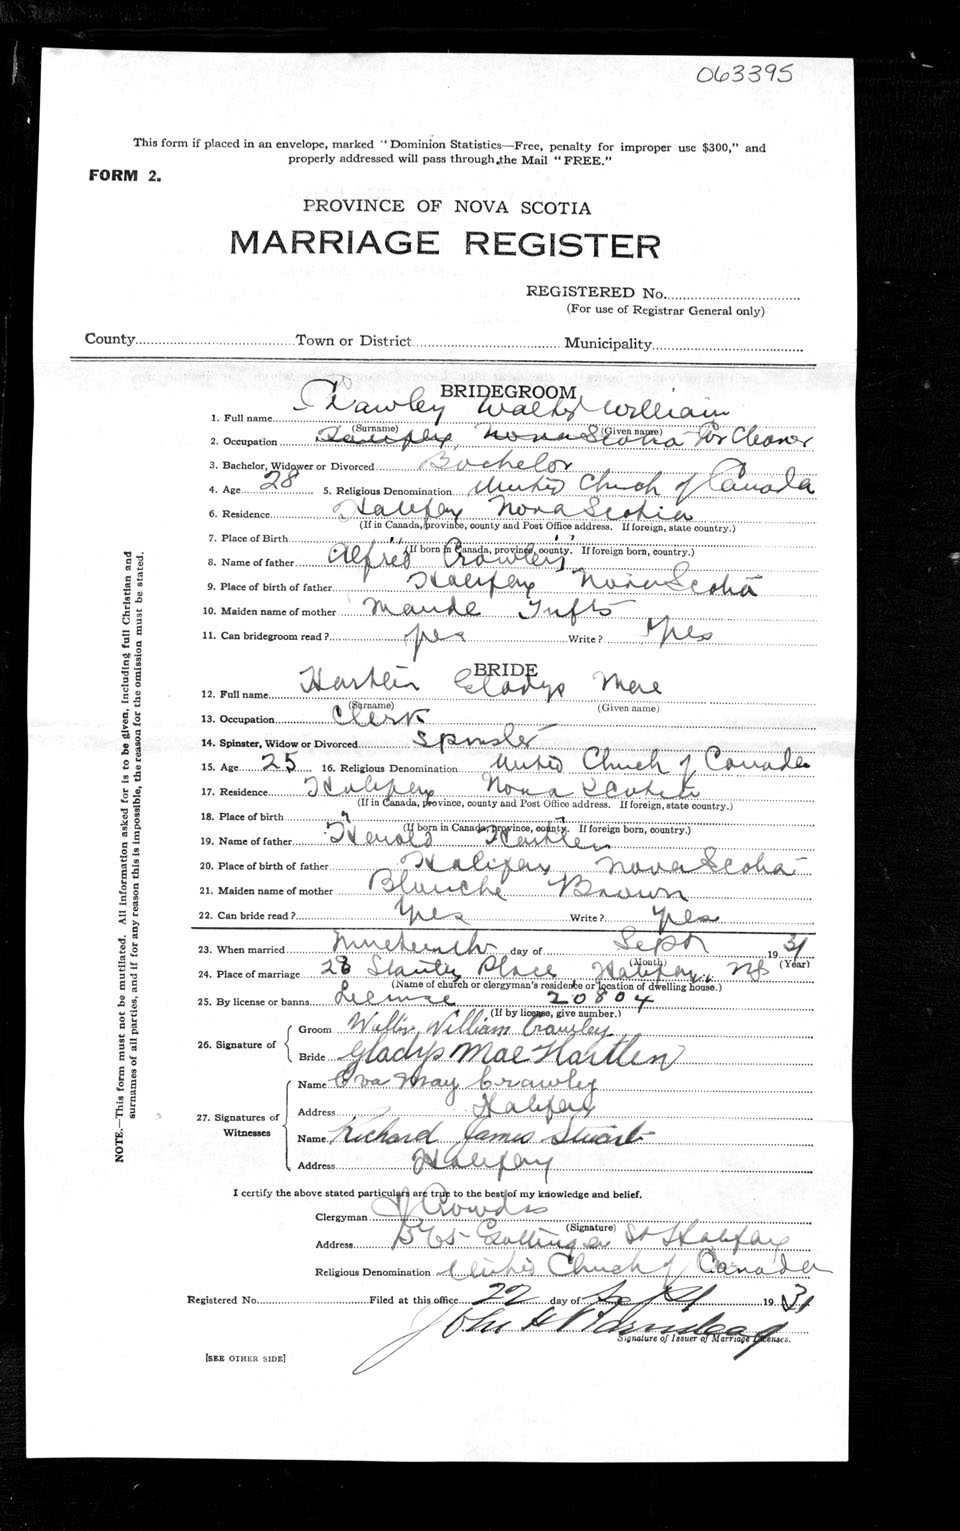 063395
This form if placed in an envelope, marked "Dominion Statistics—Free, penalty for improper use $300," and
properly addressed will pass through the Mail "FREE."
FORM 2.
PROVINCE OF NOVA SCOTIA
MARRIAGE REGISTER
REGISTERED No.
(For use of Registrar General only)
County Town or District Municipality
BRIDEGROOM
1. Full name Crawley Walter William
(Surname) (Given name)
2. Occupation Halifax, Nova Scotia Cleaner
3. Bachelor, Widower or Divorced Bachelor
4. Age 28 5. Religious Denomination United Church of Canada
6. Residence Halifax Nova Scotia
(If in Canada, province, county and Post Office address. If foreign, state country.)
7. Place of Birth " "
(If born in Canada, province, county. If foreign born, country.)
8. Name of father Alfred Crawley
9. Place of birth of father Halifax Nova Scotia
10. Maiden name of mother Maude Tufts
11. Can bridegroom read? yes Write? Yes
BRIDE
12. Full name Hartlen Gladys Mae
(Surname) (Given name)
13. Occupation Clerk
14. Spinster, Widow or Divorced Spinster
15. Age 25 16. Religious Denomination United Church of Canada
17. Residence Halifax Nova Scotia
(If in Canada, province, county and Post Office address. If foreign, state country.)
18. Place of birth " "
(If born in Canada, province, county. If foreign born, country.)
19. Name of father Hartlen
20. Place of birth of father Halifax Nova Scotia
21. Maiden name of mother Blanche Brown
22. Can bride read? Yes Write? yes
23. When married Nineteenth day of Sept 1931
(Month) (Year)
24. Place of marriage 28 Place Halifax, NS
(Name of church or clergyman's residence or location of dwelling house.)
25. By license or banns License 20804
(If by license, give number.)
26. Signature of Groom William Crawley
Bride Gladys Mae Hartlen
27. Signatures of Witnesses
Name Eva May Crawley
Address Halifax
Name Richard James Stuart
Address Halifax
I certify the above stated particulars are true to the best of my knowledge and belief.
Clergyman
(Signature)
Address St Halifax
Religious Denomination United Church of Canada
Registered No. Filed at this office 22 day of Sept 1931
John H
Signature of Issuer of Marriage Licenses.
[SEE OTHER SIDE]
NOTE.—This form must not be mutilated. All information asked for is to be given, including full Christian and
surnames of all parties, and if for any reason this is impossible, the reason for the omission must be stated.